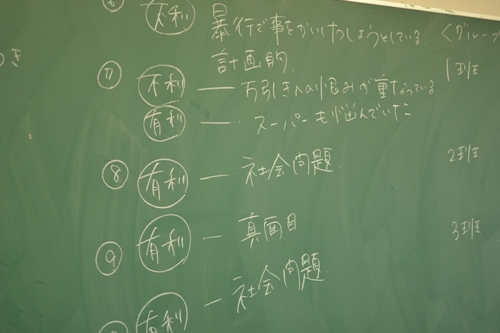 ⑥ 不利 暴行で事をかいけつしようとしている。 <グループ
計画的 1班
⑦ 不利 ― 万引きへの恨みが重なっている
有利 ― スーパーも悩んでいた
⑧ 有利 ― 社会問題 2班
⑨ 有利 ― 真面目 3班
有利 ― 社会問題